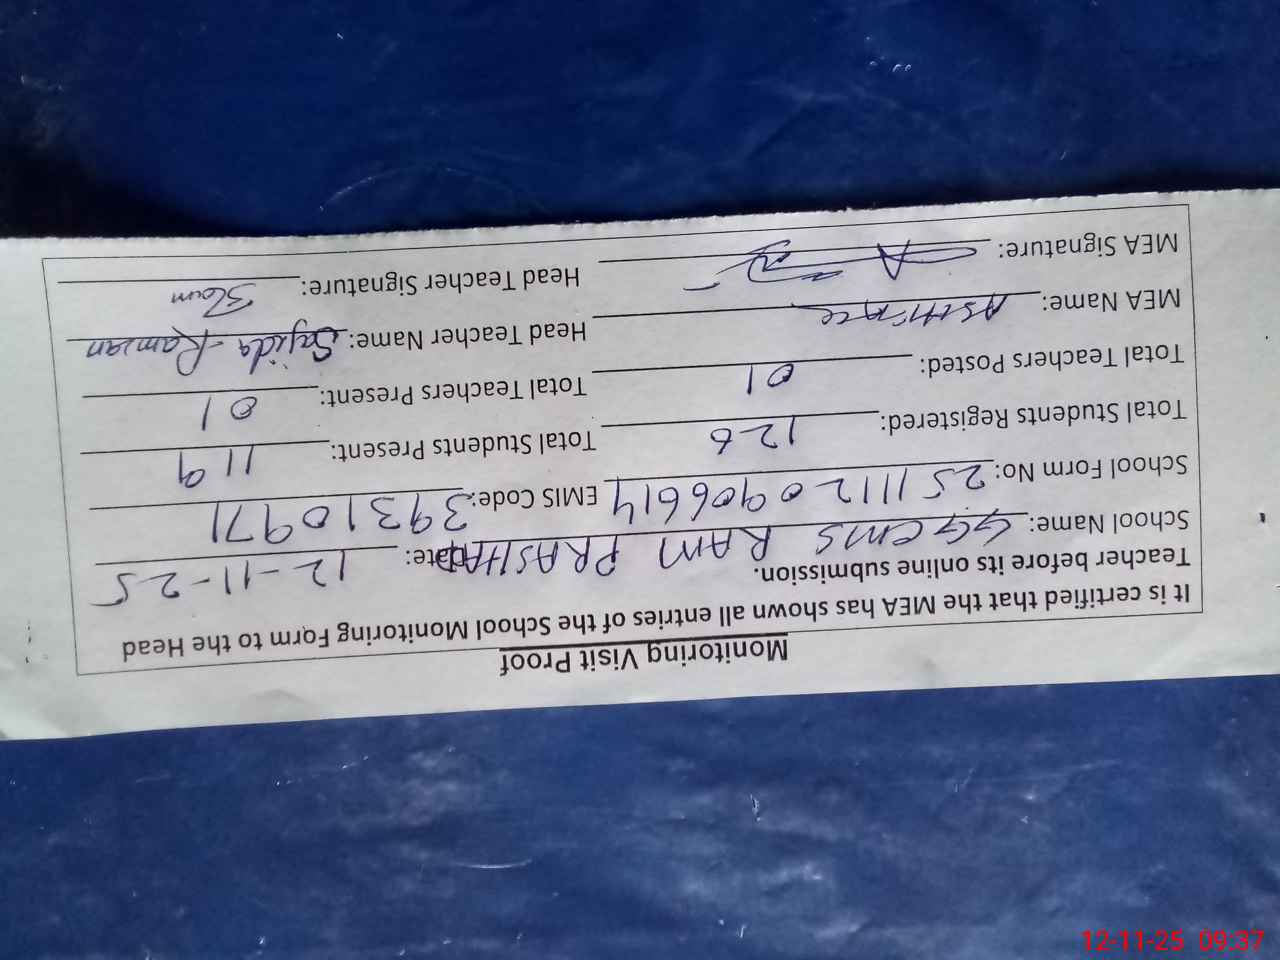 Monitoring Visit Proof
It is certified that the MEA has shown all entries of the School Monitoring Form to the Head
Teacher before its online submission.
School Name: GGCMS RAM PRASHAD Date: 12-11-25
School Form No: 25111120906614 EMIS Code: 39310971
Total Students Registered: 126 Total Students Present: 119
Total Teachers Posted: 01 Total Teachers Present: 01
MEA Name: Head Teacher Name: Sajida Ramzan
MEA Signature: Head Teacher Signature:
12-11-25 09:37